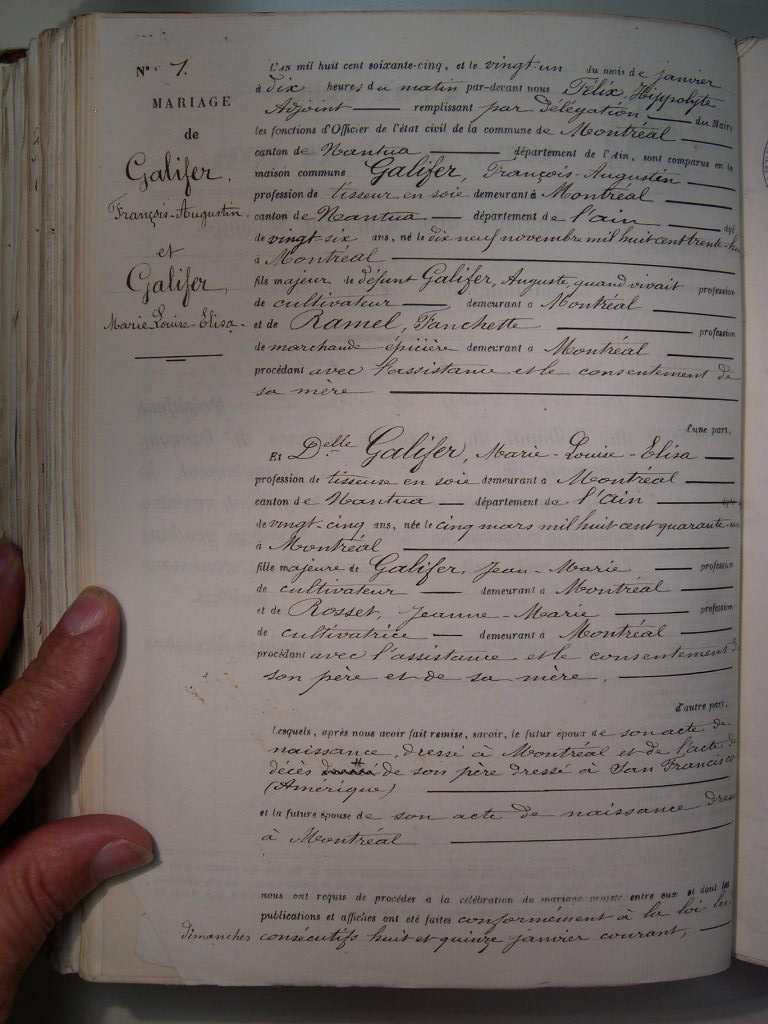 N° 1.
MARIAGE
de
Galifer,
François-Augustin.
et
Galifer,
Marie-Louise-Elisa.
L'AN mil huit cent soixante-cinq, et le vingt-un du mois de janvier
à dix heures du matin par-devant nous Félix, Hippolyte
Adjoint remplissant par délégation du Maire
les fonctions d'Officier de l'état civil de la commune de Montréal
canton de Nantua département de l'Ain, sont comparus en la
maison commune Galifer, François-Augustin
profession de tisseur en soie demeurant à Montréal
canton de Nantua département de l'ain
de vingt-six ans, né le dix neuf novembre mil huit cent trente-
à Montréal
fils majeur de défunt Galifer, Auguste, quand vivait profession
de cultivateur demeurant à Montréal
et de Ramel, Fanchette profession
de marchande épicière demeurant à Montréal
procédant avec l'assistance et le consentement de
sa mère
d'une part,
Et Delle Galifer, Marie-Louise-Elisa
profession de tisseuse en soie demeurant à Montréal
canton de Nantua département de l'ain
de vingt-cinq ans, née le cinq mars mil huit cent quarante-
à Montréal
fille majeure de Galifer, Jean-Marie profession
de cultivateur demeurant à Montréal
et de Rosset, Jeanne-Marie profession
de cultivatrice demeurant à Montréal
procédant avec l'assistance et le consentement de
son père et de sa mère,
d'autre part,
Lesquels, après nous avoir fait remise, savoir, le futur époux de son acte de
naissance, dressé à Montréal et de l'acte de
décès de son père dressé à San Francisco
(Amérique)
et la future épouse de son acte de naissance dressé
à Montréal
nous ont requis de procéder à la célébration du mariage projeté entre eux et dont les
publications et affiches ont été faites conformément à la loi les
dimanches consécutifs huit et quinze janvier courant,